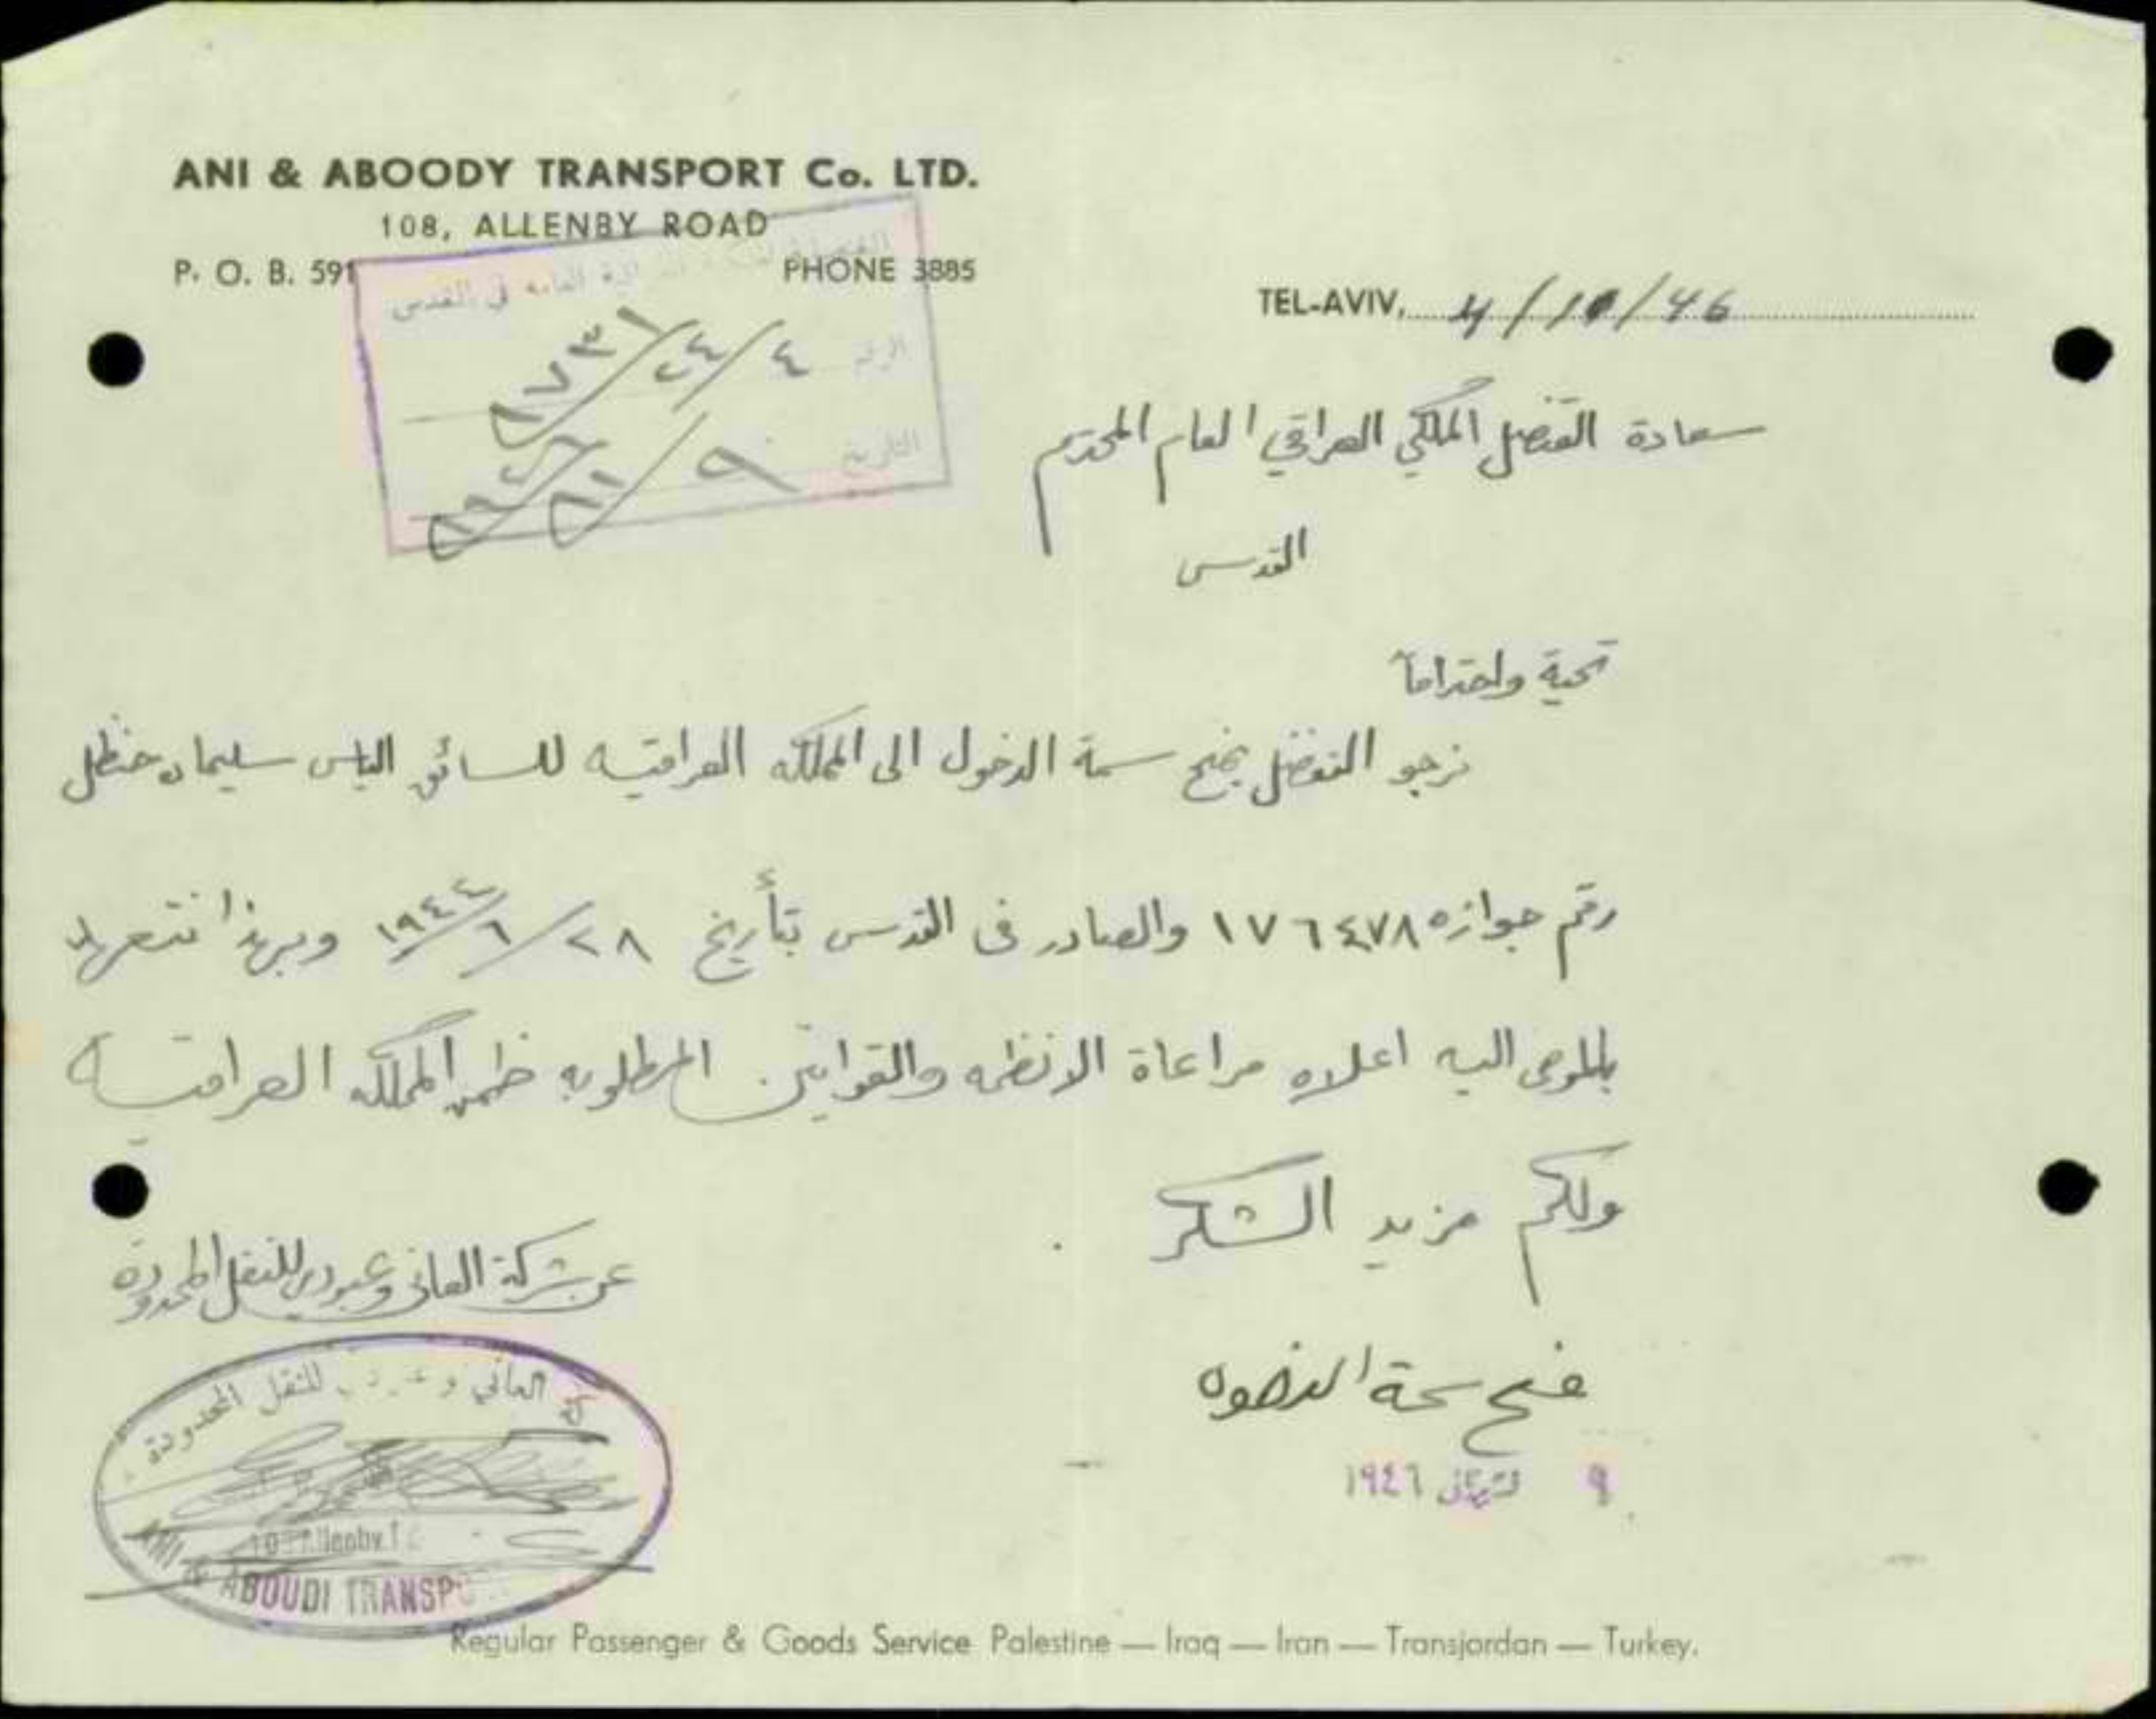 ANI & ABOODY TRANSPORT Co. LTD.
108, ALLENBY ROAD
P. O. B. 591 PHONE 3885
العامه في القدس
الرقم ٤/٢٤/٨٧٣١
التاريخ ٩
TEL-AVIV, 4/11/46
سعادة القنصل الملكي العراقي العام المحترم
القدس
تحية واحتراماً
نرجو التفضل بمنح سمة الدخول الى المملكه العراقيه للسائق الياس سليمان حنظل
رقم جوازه ١٧٦٤٧٨ والصادر في القدس بتأريخ ٢٨/٦/١٩٤٤ وبهذا نتعهد
بالموصى اليه اعلاه مراعاة الانظمه والقوانين المطلوبه ظمن المملكه العراقيه
ولكم مزيد الشكر .
عن شركة العاني وعبودي للنقل المحدودة
العاني و للنقل المحدودة
ABOUDI TRANSPO
منح سمة الدخول
٩ ١٩٤٦
Regular Passenger & Goods Service Palestine — Iraq — Iran — Transjordan — Turkey.